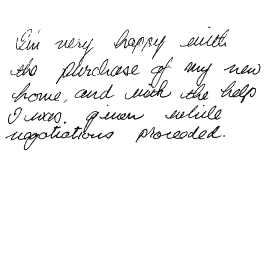 I'm very happy with
the purchase of my new
home, and with the help
I was given while
negotiations proceeded.